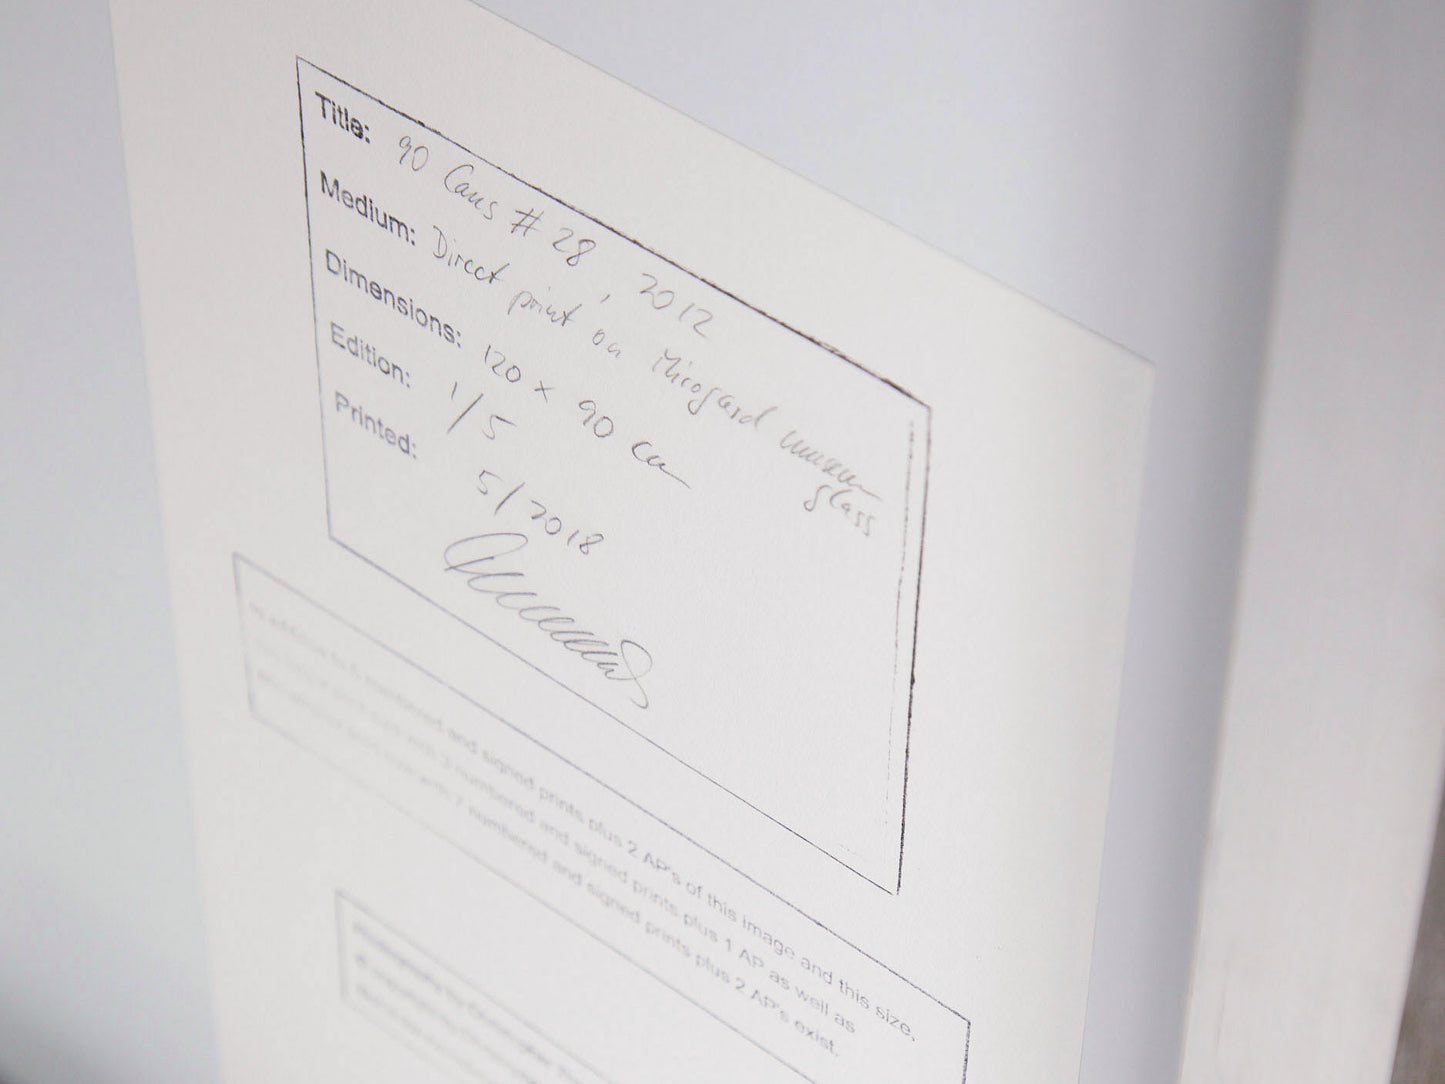 Title: 90 Cans #28, 2012
Medium: Direct print on Mirogard museum
glass
Dimensions: 120 x 90 cm
Edition: 1/5
Printed: 5/2018
In addition to 5 numbered and signed prints plus 2 AP's of this image and this size,
3 numbered and signed prints plus 1 AP as well as
7 numbered and signed prints plus 2 AP's exist.
Photograph by Christopher